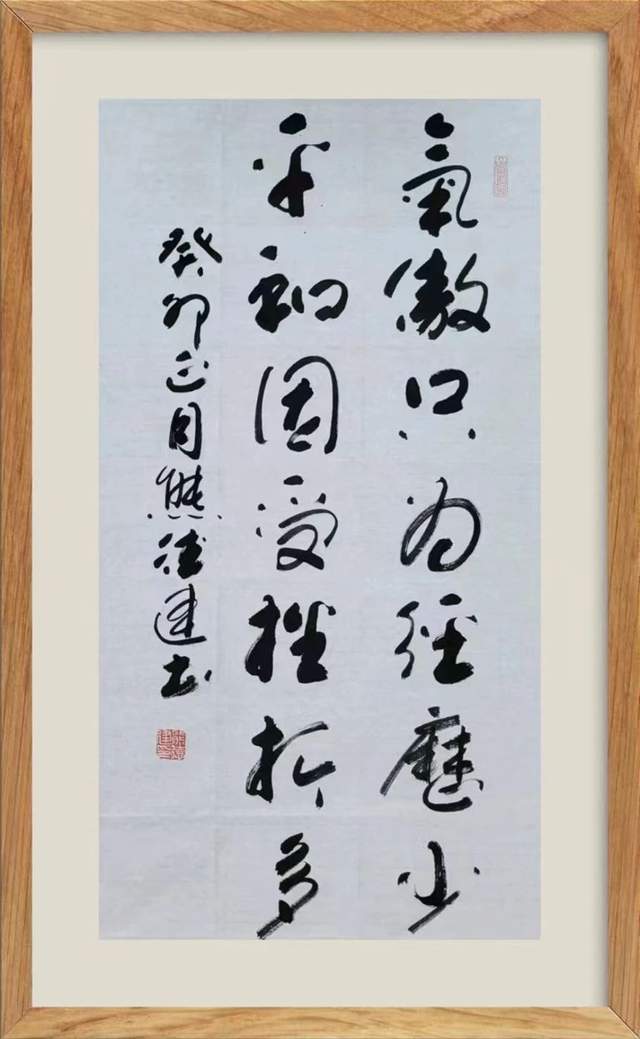 氣傲只為經歷少
平和因受挫折多
癸卯正月熊德建书